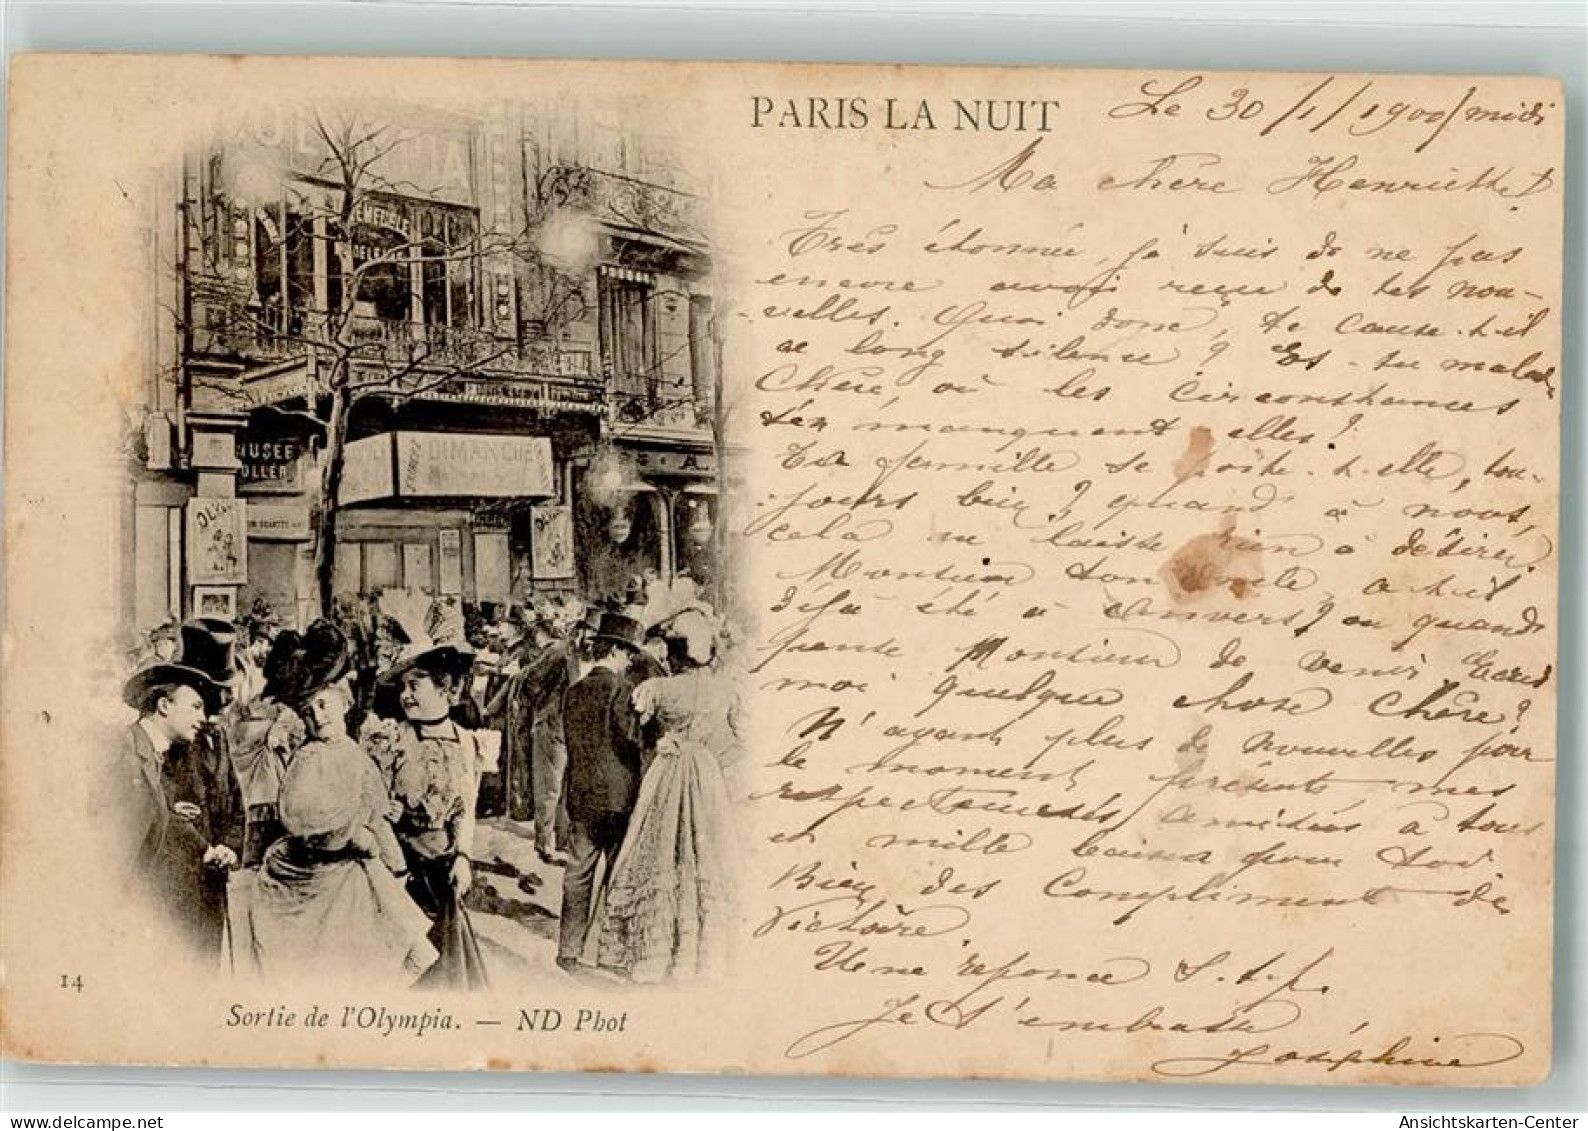 PARIS LA NUIT
Le 30/1/1900/midi
Ma chère Henriette!
Très étonnée, je suis de ne pas
encore avoir reçu de tes nou-
velles. Quoi donc, te cause-t-il
ce long silence? Es-tu malade
Chère, où les circonstances
t'en manquent elles?
Ta famille se porte-t-elle, tou-
jours bien? quand à nous,
cela ne laisse rien à désirer.
Monsieur ton oncle, a-t-il
déjà été à Anvers? ou quand
pense Monsieur de venir
moi quelque chose Chère?
N'ayant plus de nouvelles pour
le moment présente mes
respectueuses amitiés à tous
et mille baisers pour toi
Bien des Compliment de
Victoire.
Une réponse S.t.p.
Je t'embrasse
Joséphine
OLYMPIA
MUSÉE
OLLER
DIMANCHE
OLY
14
Sortie de l'Olympia. — ND Phot
Ansichtskarten-Center